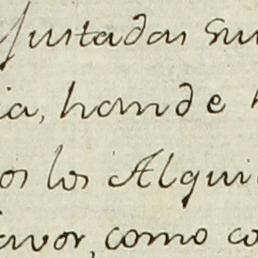 Justadas su
ia, hande
os los Alqui
favor, como co